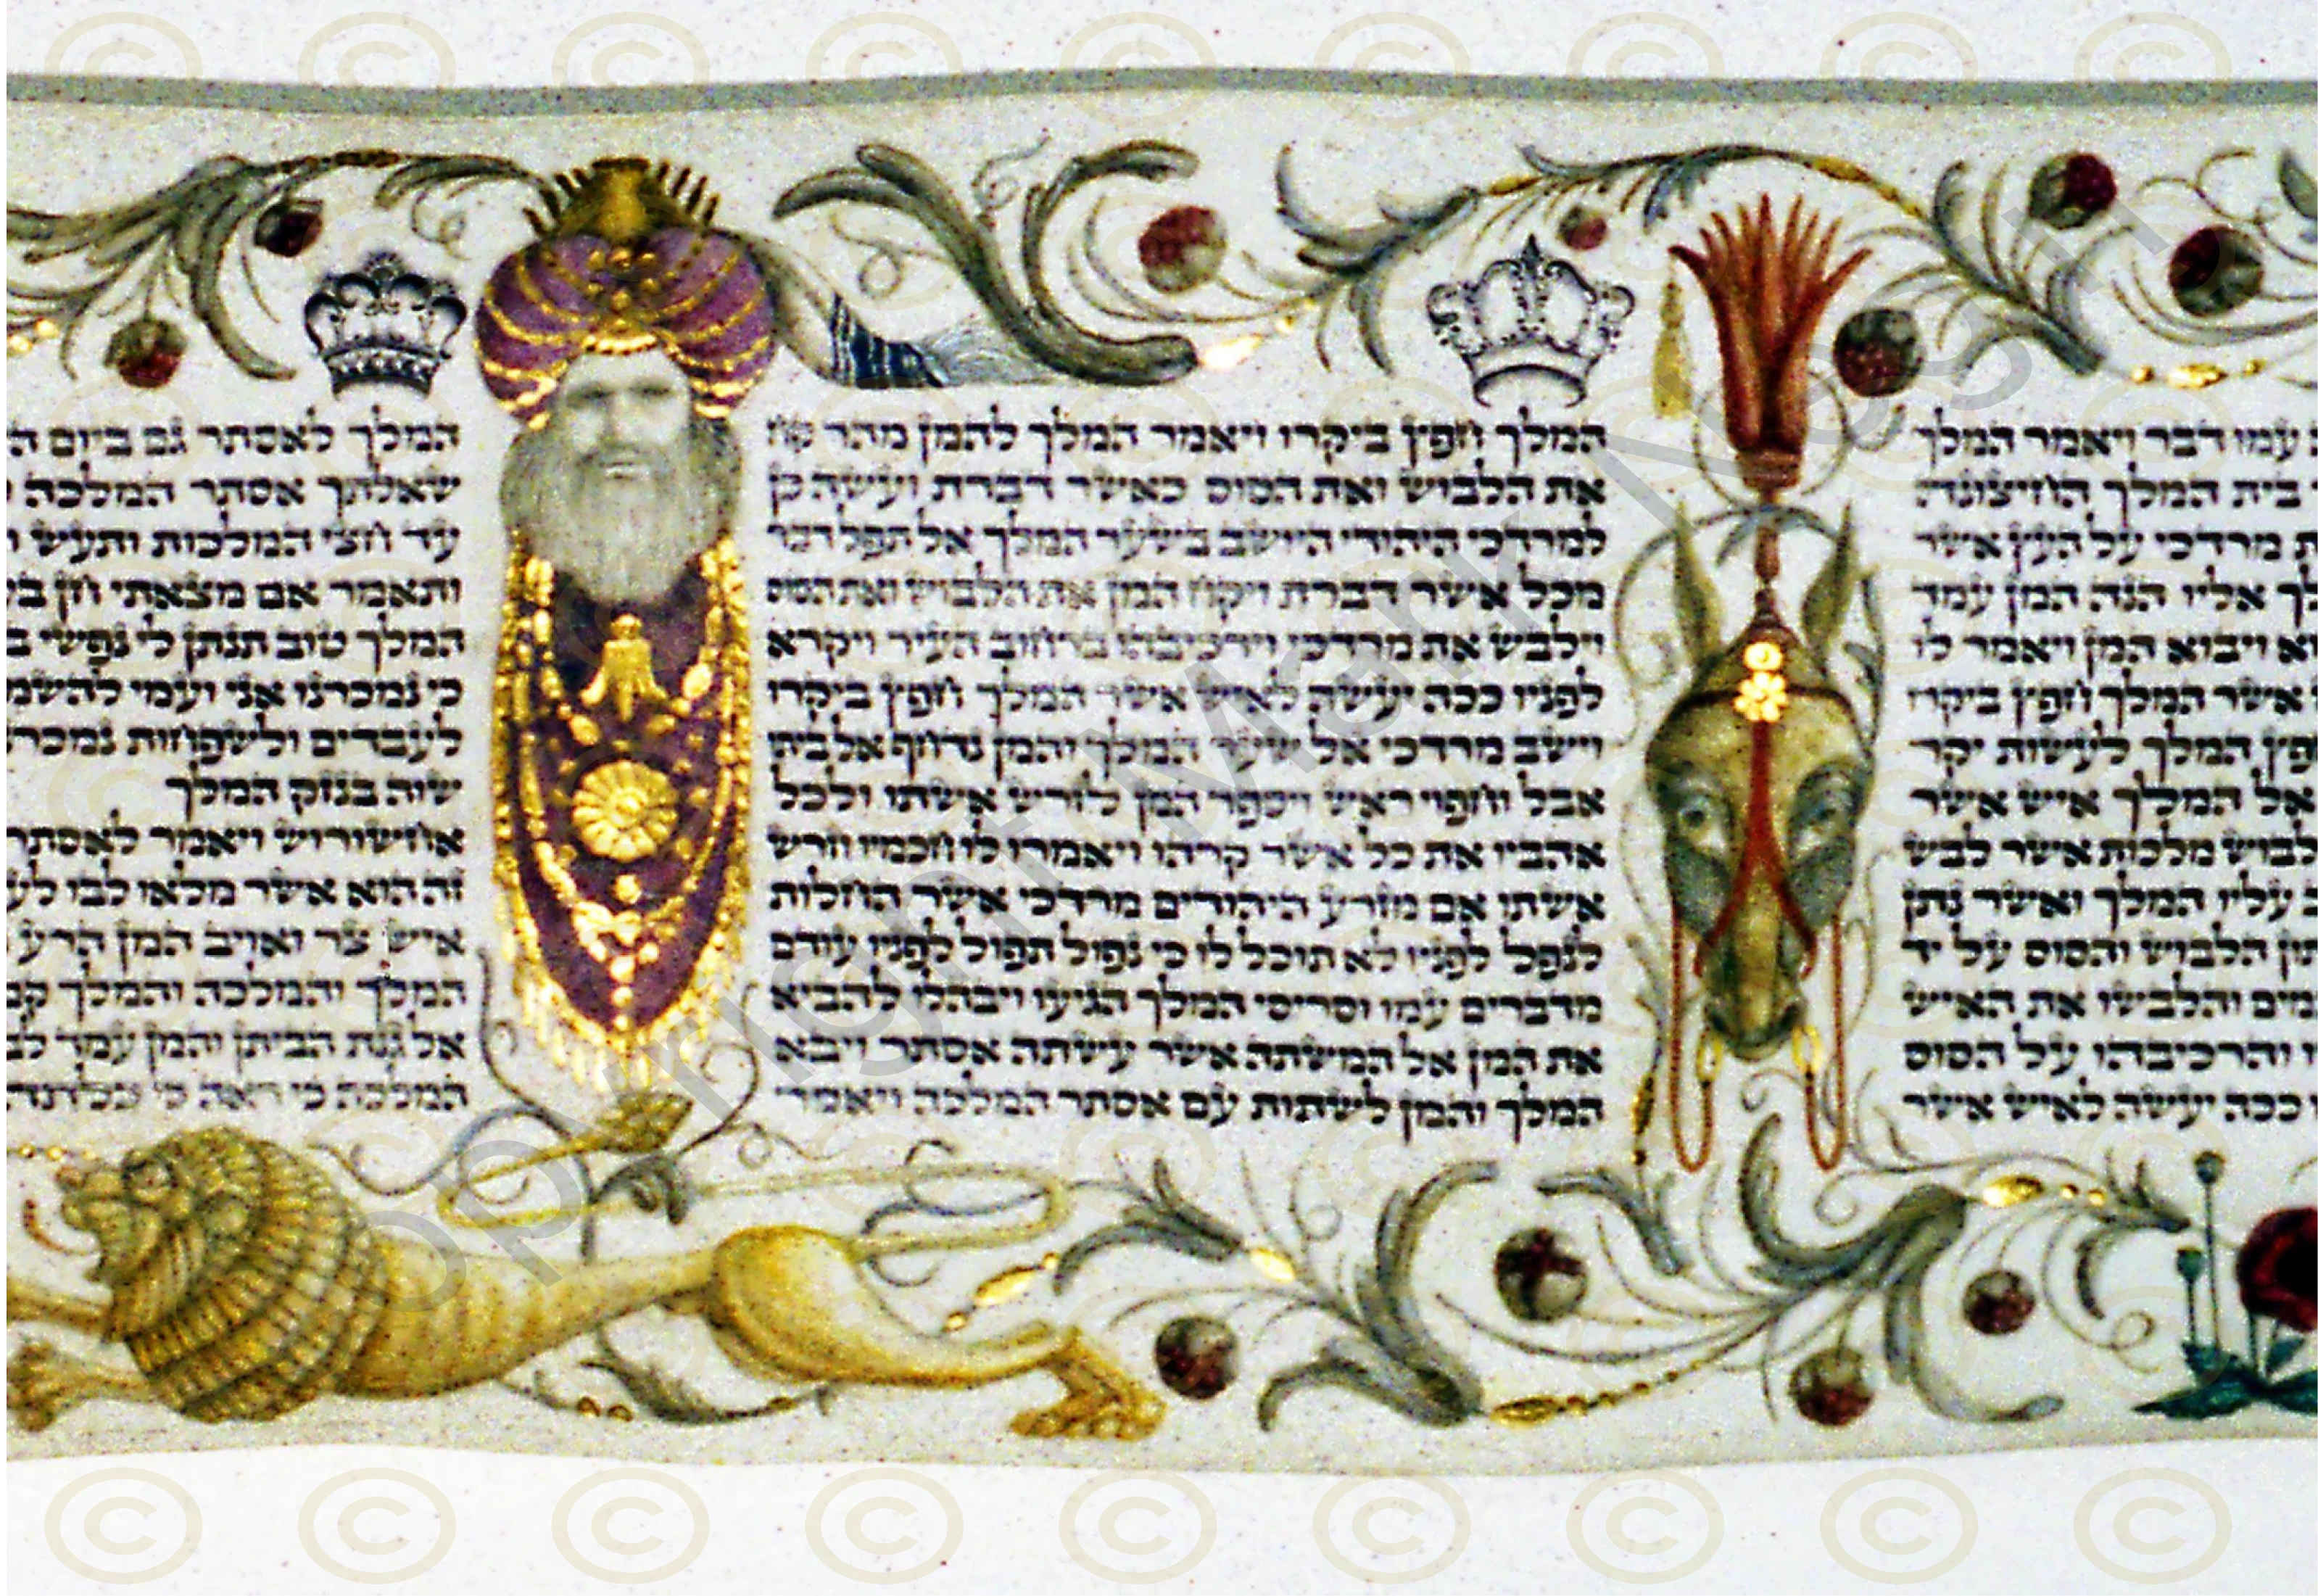 עמו דבר ויאמר המלך
בית המלך החיצונה
מרדכי על העץ אשר
אליו הנה המן עמד
ויבוא המן ויאמר לו
אשר המלך חפץ ביקרו
המלך לעשות יקר
אל המלך איש אשר
לבוש מלכות אשר לבש
עליו המלך ואשר נתן
הלבוש והסוס על יד
והלבישו את האיש
והרכיבהו על הסוס
ככה יעשה לאיש אשר
המלך חפץ ביקרו ויאמר המלך להמן מהר קח
את הלבוש ואת הסוס כאשר דברת ועשה כן
למרדכי היהודי היושב בשער המלך אל תפל דבר
מכל אשר דברת ויקח המן את הלבוש ואת הסוס
וילבש את מרדכי וירכיבהו ברחוב העיר ויקרא
לפניו ככה יעשה לאיש אשר המלך חפץ ביקרו
וישב מרדכי אל שער המלך והמן נדחף אל ביתו
אבל וחפוי ראש ויספר המן לזרש אשתו ולכל
אהביו את כל אשר קרהו ויאמרו לו חכמיו וזרש
אשתו אם מזרע היהודים מרדכי אשר החלות
לנפל לפניו לא תוכל לו כי נפול תפול לפניו עודם
מדברים עמו וסריסי המלך הגיעו ויבהלו להביא
את המן אל המשתה אשר עשתה אסתר ויבא
המלך והמן לשתות עם אסתר המלכה ויאמר
המלך לאסתר גם ביום
שאלתך אסתר המלכה
עד חצי המלכות ותעש
ותאמר אם מצאתי חן
המלך טוב תנתן לי נפשי
כי נמכרנו אני ועמי
לעבדים ולשפחות
שוה בנזק המלך
אחשורוש ויאמר לאסתר
זה הוא אשר מלאו לבו
איש צר ואויב המן הרע
המלך והמלכה והמלך
אל גנת הביתן והמן עמד
המלכה כי ראה כי כלתה
opyright Mark